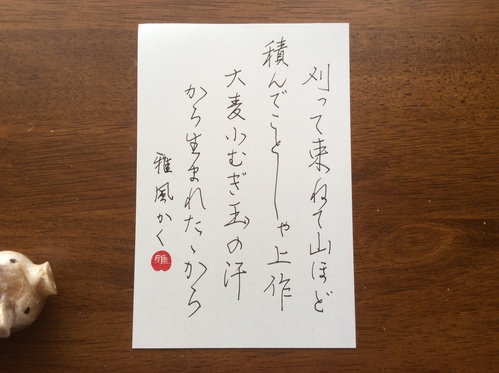 刈って束ねて山ほど
積んでことしゃ上作
大麦小むぎ玉の汗
から生まれたゝから
雅風かく
雅